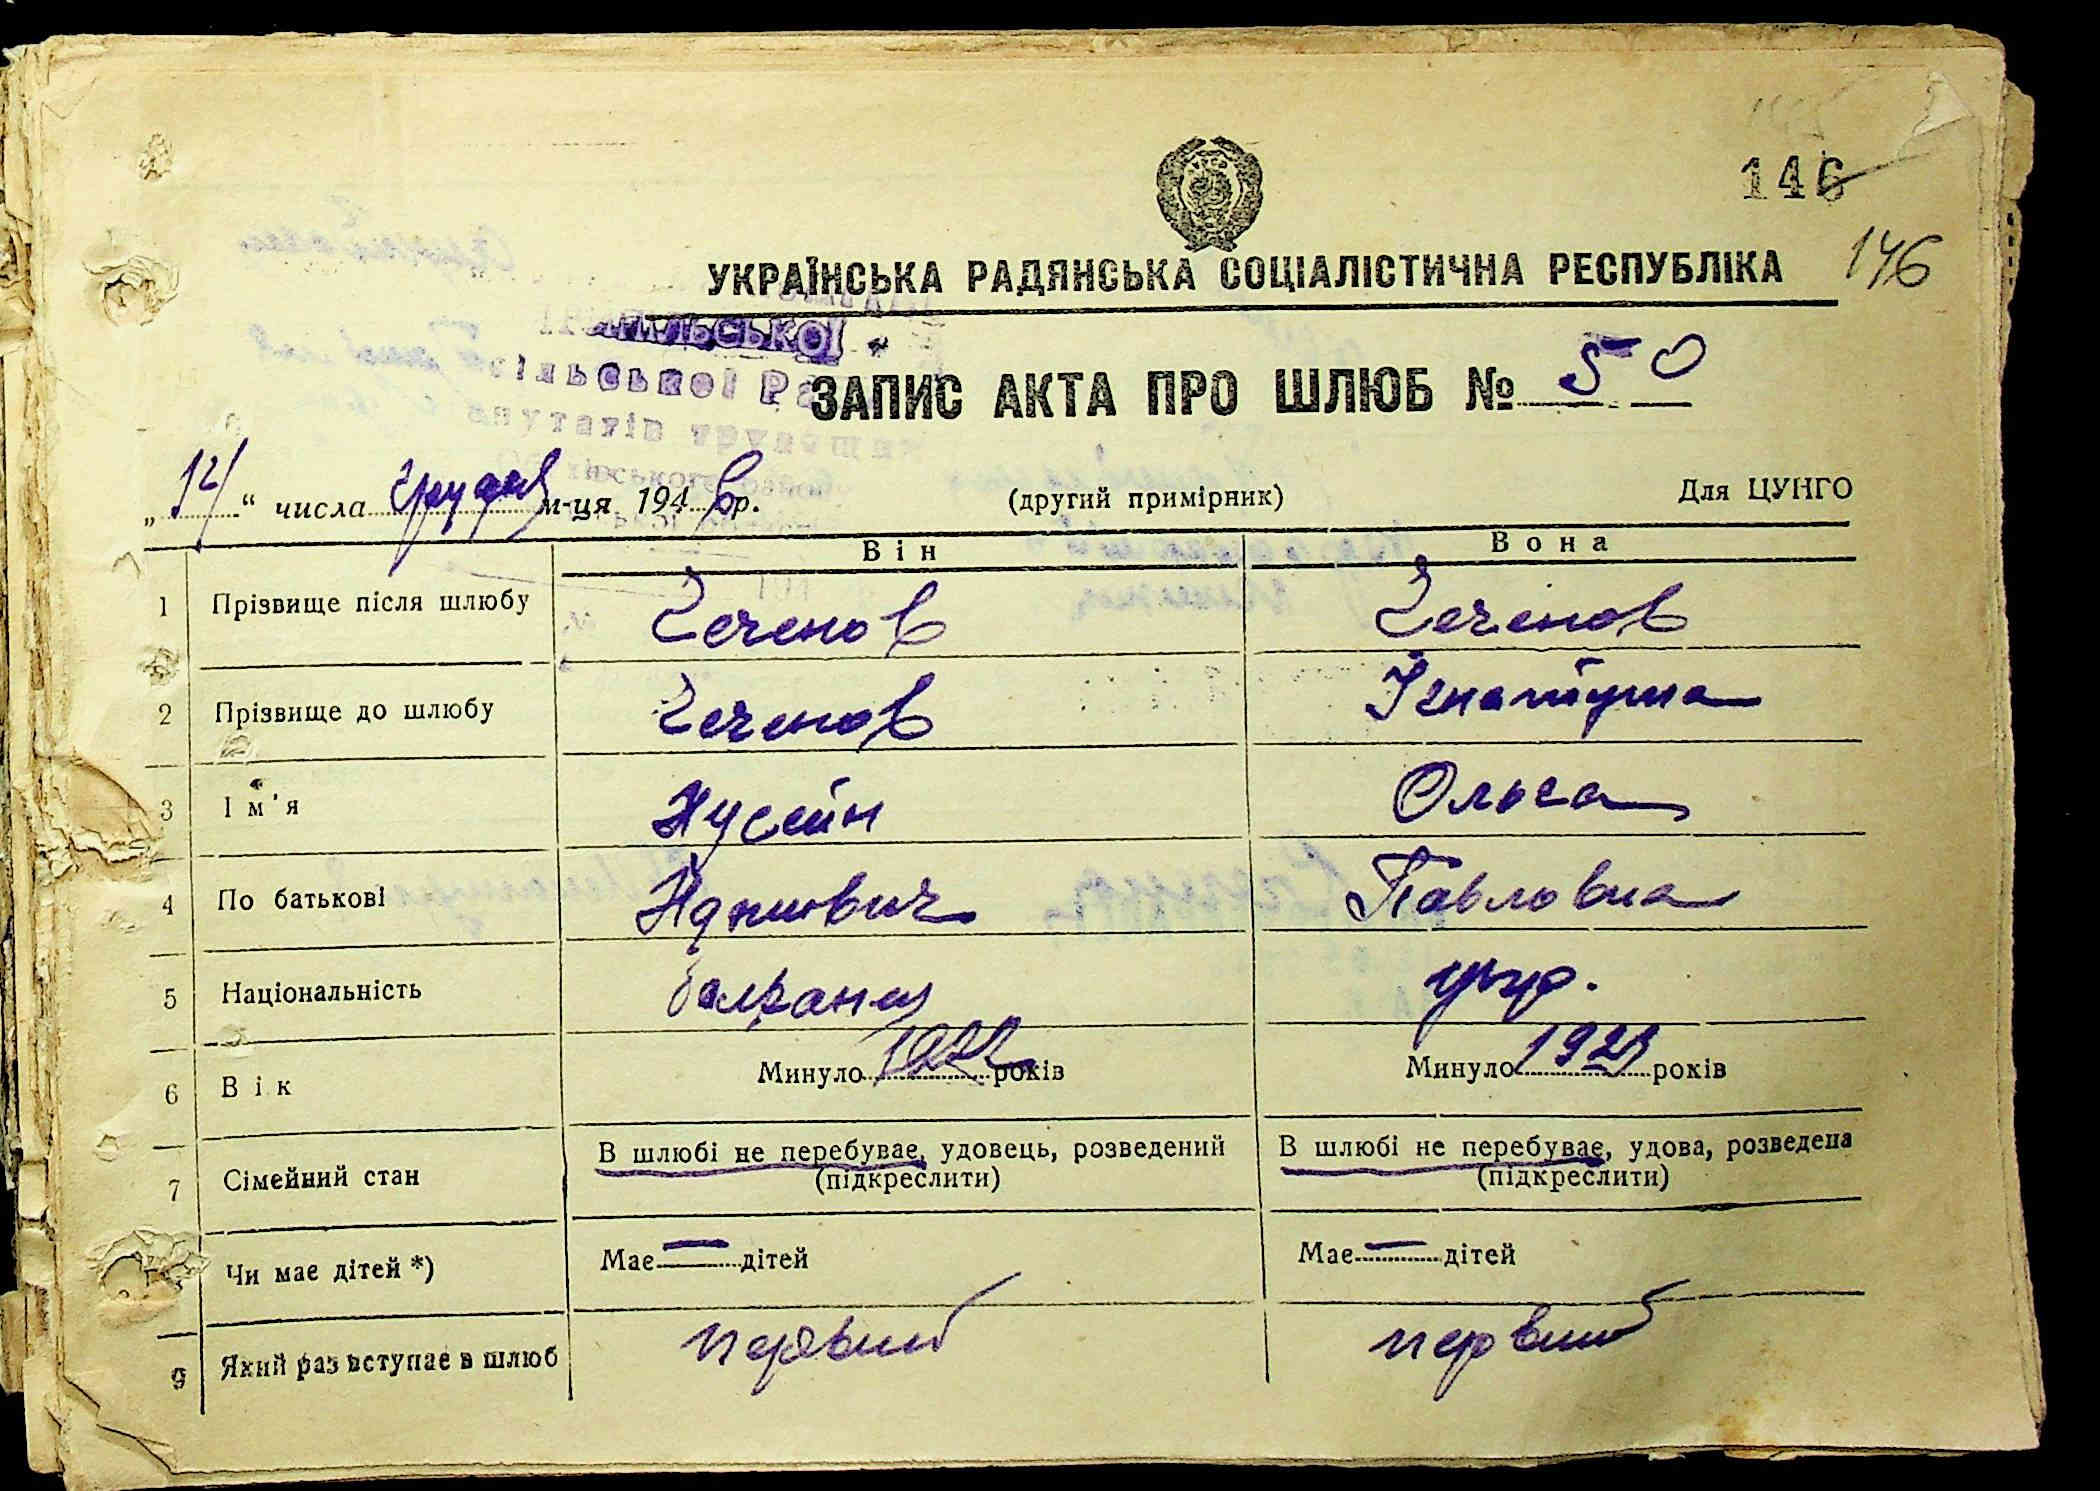 146
146
УКРАЇНСЬКА РАДЯНСЬКА СОЦІАЛІСТИЧНА РЕСПУБЛІКА
сільської Ра
ЗАПИС АКТА ПРО ШЛЮБ № 50
„14“ числа грудня м-ця 1946р. (другий примірник) Для ЦУНГО
Він Вона
1 Прізвище після шлюбу Чеченов Чеченов
2 Прізвище до шлюбу Чеченов Ігнатуша
3 Ім'я Хусейн Ольга
4 По батькові Павловна
5 Національність укр.
6 Вік Минуло 1922 років Минуло 1923 років
7 Сімейний стан В шлюбі не перебуває, удовець, розведений В шлюбі не перебуває, удова, розведена
(підкреслити) (підкреслити)
Чи має дітей *) Має — дітей Має — дітей
9 Який раз вступає в шлюб первий первий